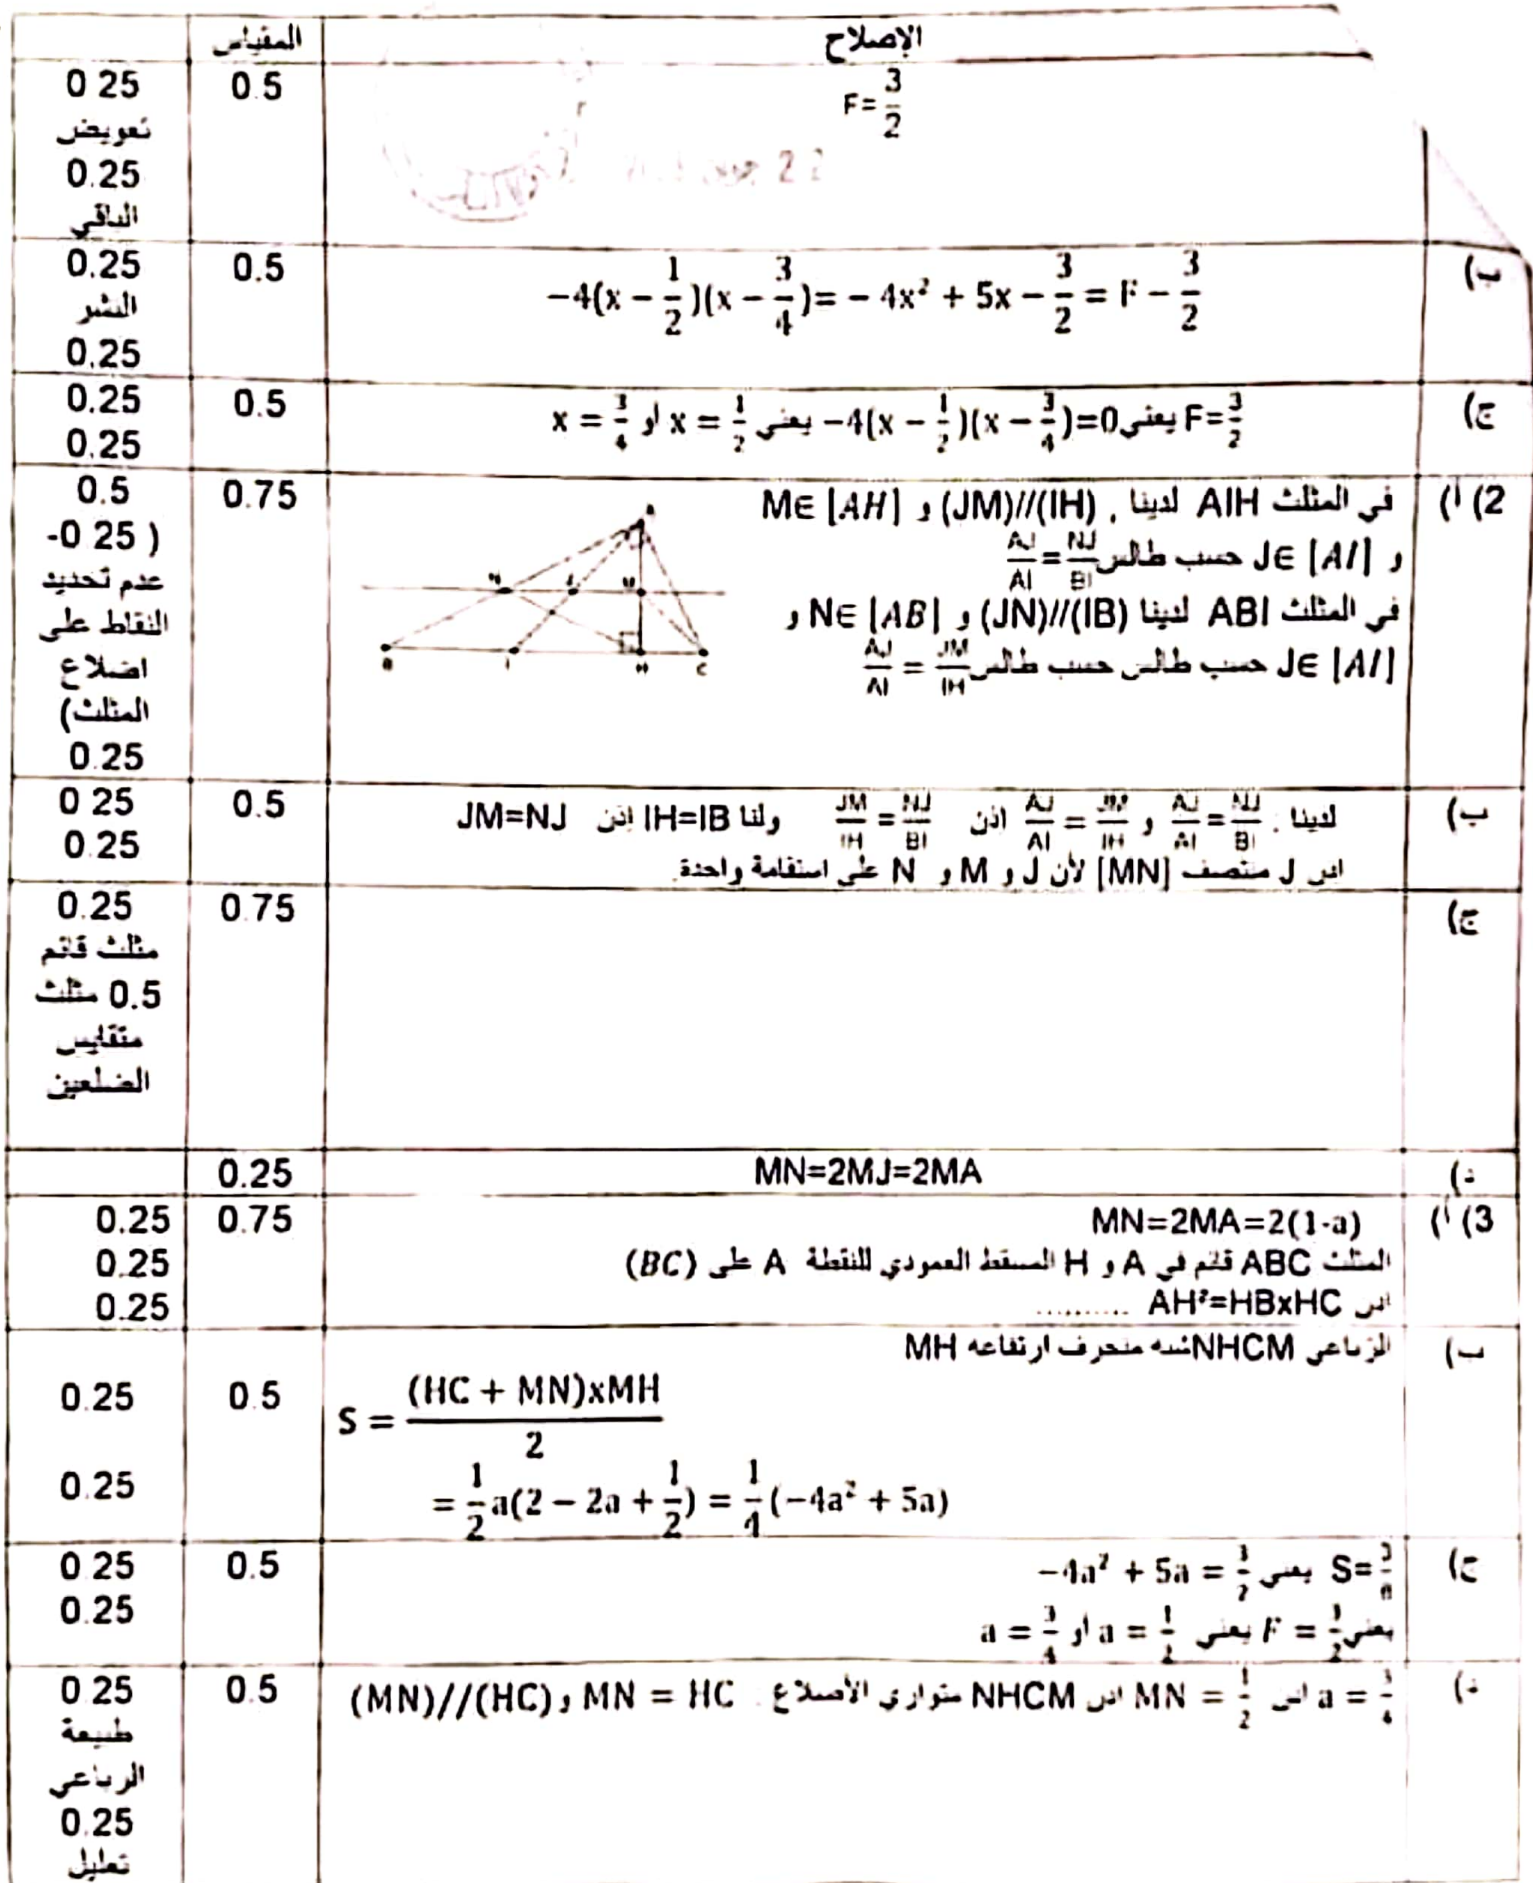 الإصلاح المقياس
F=3/2 0.5 0 25
تعويض
0.25
الباقي
ب) −4(x − 1/2)(x − 3/4)= − 4x² + 5x − 3/2 = F − 3/2 0.5 0.25
النشر
0.25
ج) F=3/2 يعني −4(x − 1/2)(x − 3/4)=0 يعني x = 1/2 او x = 3/4 0.5 0.25
0.25
2) أ) في المثلث AIH لدينا , (JM)//(IH) و M∈ [AH] 0.75 0.5
و J∈ [AI] حسب طالس AJ/AI = NJ/BI
في المثلث ABI لدينا (JN)//(IB) و N∈ [AB] و
J∈ [AI] حسب طالس حسب طالس AJ/AI = JM/IH
( -0 25
عدم تحديد
النقاط على
اضلاع
المثلث)
0.25
ب) لدينا : AJ/AI = NJ/BI و AJ/AI = JM/IH اذن JM/IH = NJ/BI ولنا IH=IB اذن JM=NJ 0.5 0 25
اذن J منتصف [MN] لأن J و M و N على استقامة واحدة. 0.25
ج) 0.75 0.25
مثلث قائم
0.5 مثلث
متقايس
الضلعين
د) MN=2MJ=2MA 0.25
3) أ) MN=2MA=2(1-a) 0.75 0.25
المثلث ABC قائم في A و H المسقط العمودي للنقطة A على (BC) 0.25
اذن AH²=HBxHC .......... 0.25
ب) الرباعي NHCM شبه منحرف ارتفاعه MH
S = (HC + MN)xMH/2 0.5 0.25
= 1/2 a(2 − 2a + 1/2) = 1/4 (−4a² + 5a) 0.25
ج) S=3/8 يعني −4a² + 5a = 3/2 0.5 0.25
يعني F = 3/2 يعني a = 1/2 او a = 3/4 0.25
د) a = 3/4 اذن MN = 1/2 اذن NHCM متوازي الأضلاع . MN = HC و (MN)//(HC) 0.5 0.25
طبيعة
الرباعي
0.25
تعليل